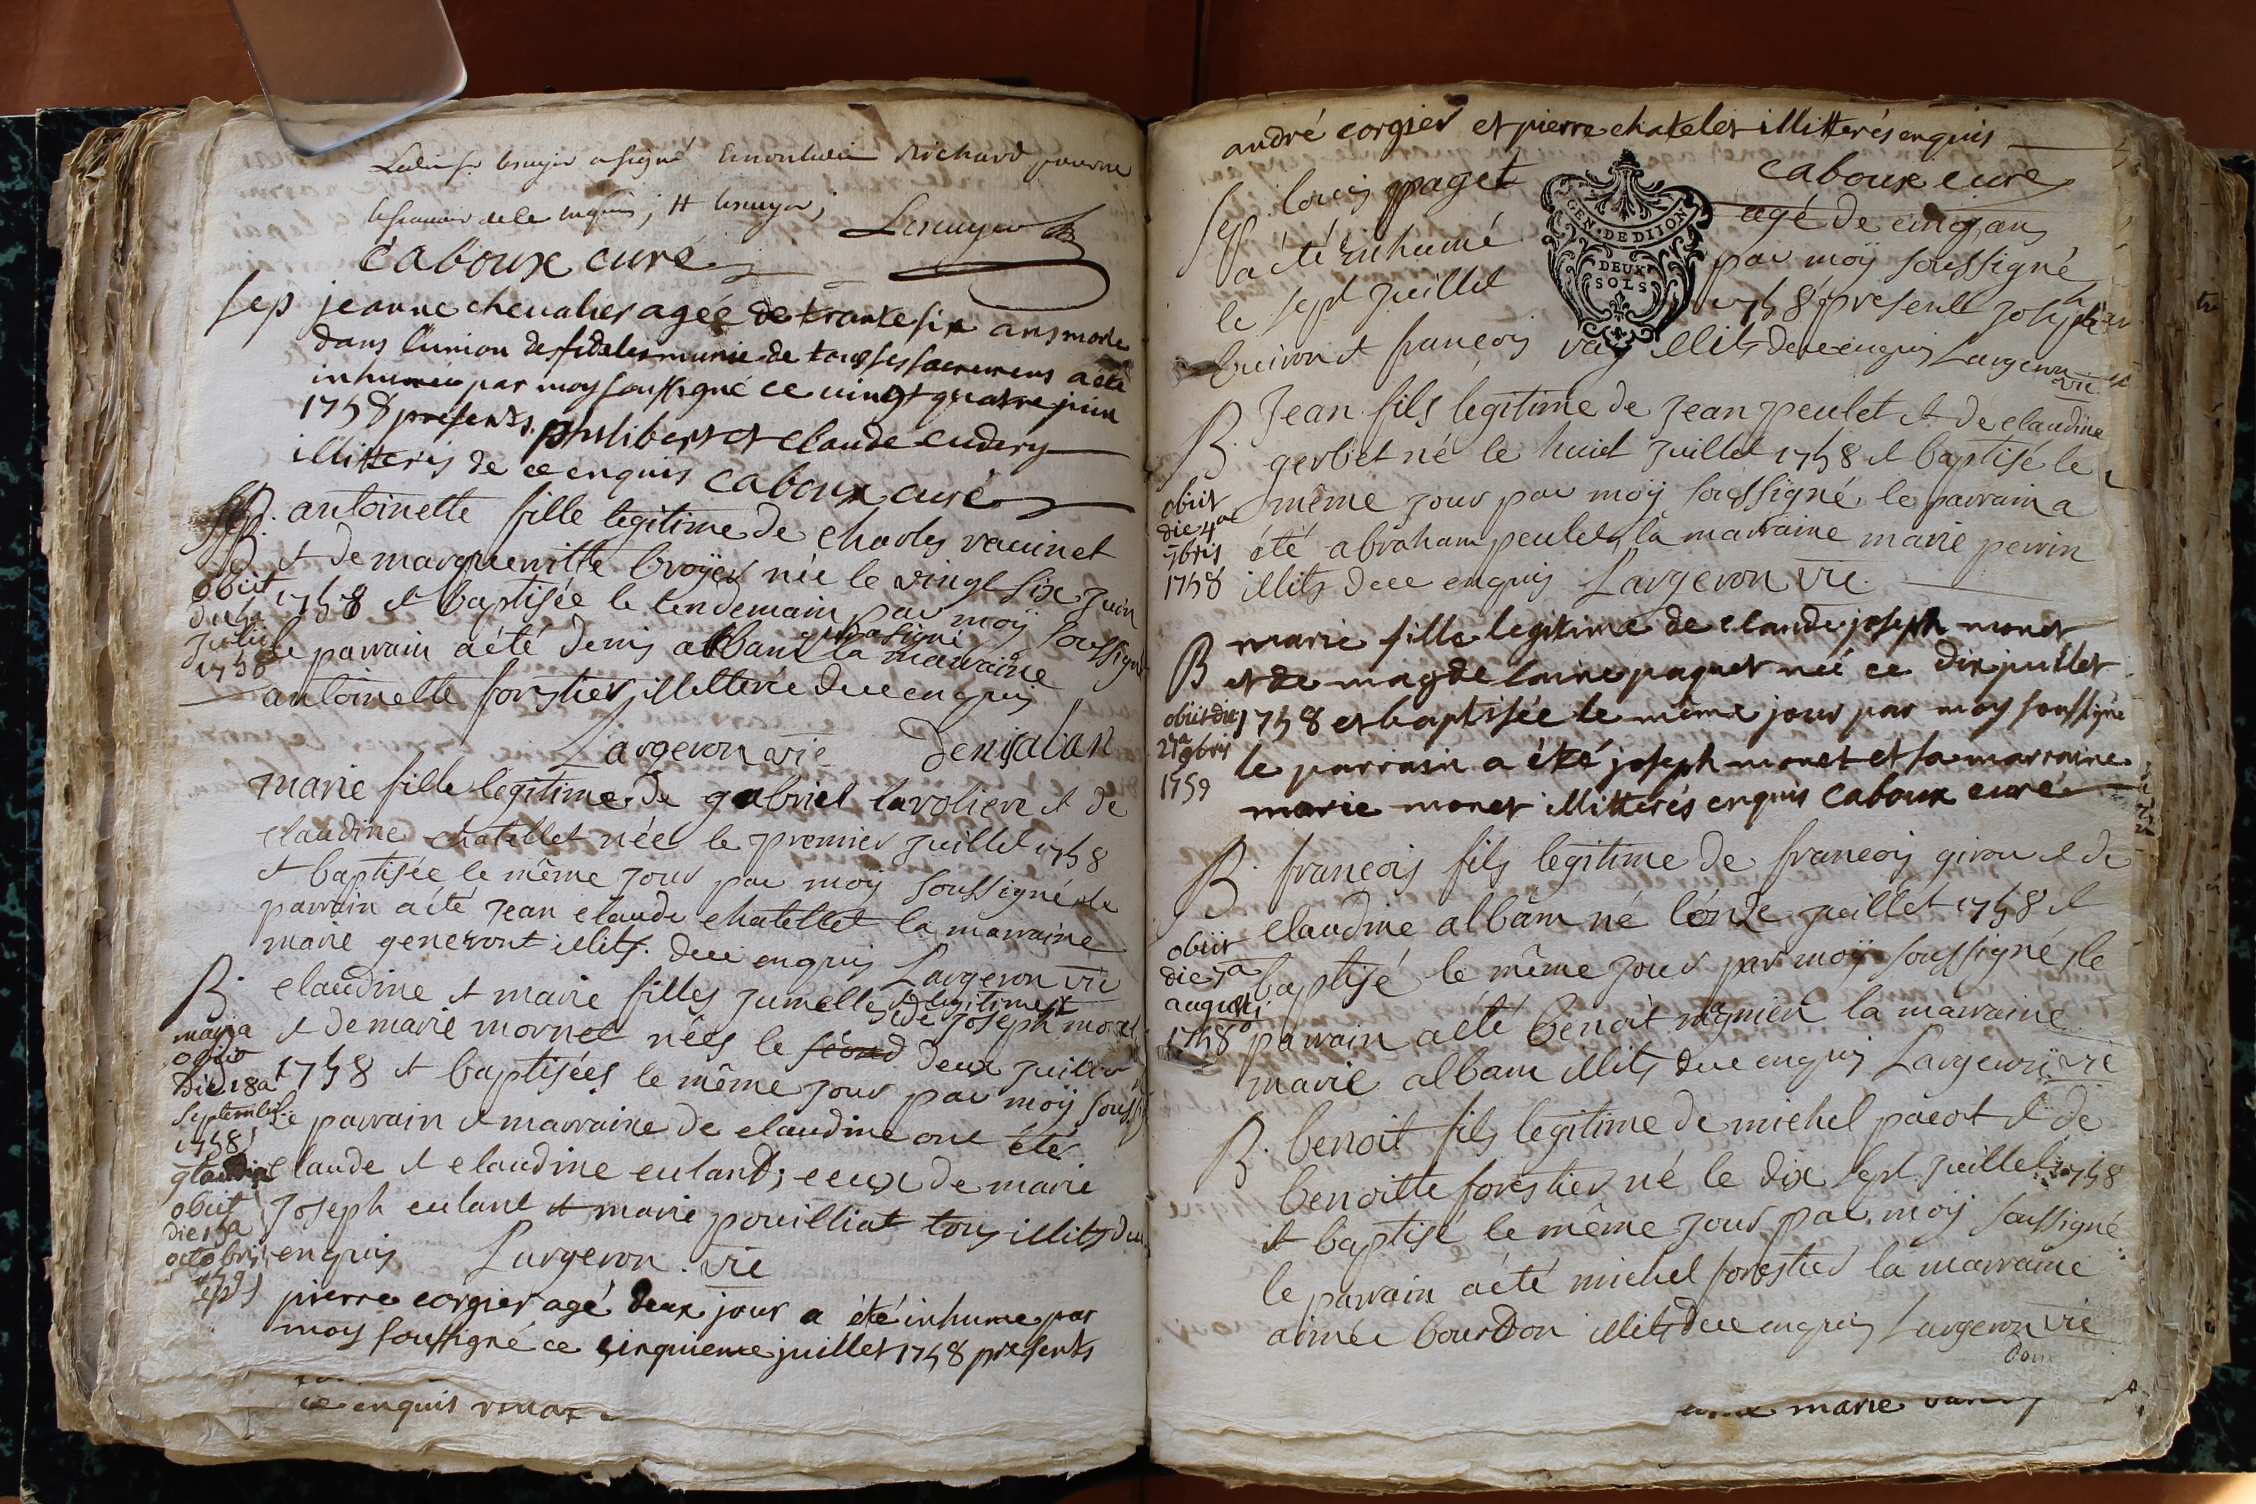 a signé Richard
Lesnuyer
caboux curé
sep jeanne chevalier agée de trante six ans morte
dans l'union des fideles munie de tous ses sacremens a été
inhumée par moy soussigné ce vingt quatre juin
1758 presents philibert et claude cudery
illitterés de ce enquis caboux curé
B. antoinette fille legitime de charles vauinet
et de margueritte broÿer née le vingt six Juin
1758 et baptisée le lendemain par moÿ soussigné
le parrain a été denis alban qui a signé la marraine
antoinette forestier illitterée de ce enquis
obiit
die 4a
Julii
1758
Largeron vic denis alban
marie fille legitime de gabriel lavoliere et de
claudine chatellet née le premier juillet 1758
et baptisée le même jour par moy soussigné le
parrain a été jean claude chatellet la marraine
marie generont illits. dece enquis Largeron vic
B. claudine et marie filles jumelles et legitimes de joseph
et de marie mornet nées le second deux juillet
1758 et baptisées le même jour par moÿ souss
le parrain et marraine de claudine ont été
claude et claudine culant; ceux de marie
joseph culant et marie pouilliat tous illits de
enquis Largeron. vic
maria
obiit
die 18a
septembris
1758
claudina
obiit
die 15a
octobris
sep pierre corgier agé deux jour a été inhume par
moy soussigné ce cinquieme juillet 1758 presents
ce enquis
andré corgier et pierre chatelet illitterés enquis
caboux curé
sep louis paget agé de cinq ans
GEN. DE DIJON
DEUX
SOLS
a été inhumé par moÿ soussigné
le sept juillet 1758 presents joseph
buiron et françois vay illits dece enquis Largeron vic
B. Jean fils legitime de Jean peulet et de claudine
gerbet né le huit juillet 1758 et baptisé le
même jour par moÿ soussigné le parrain a
été abraham peulet, la marraine marie perrin
illits dece enquis Largeron vic.
obiit
die 4a
7bris
1758
B marie fille legitime de claude joseph monet
et de magdelaine paquet née ce dix juillet
1758 et baptisée le même jour par moy soussigné
le parrain a été joseph monet et sa marraine
marie monet illitterés enquis caboux curé
obiit die
9bris
1759
B. françois fils legitime de françois girou et de
claudine albam né l'onze juillet 1758 et
baptisé le même jour par moÿ soussigné le
parrain a été benoit mignien la marraine
marie albam illits dece enquis Largeron vic
obiit
die 7a
augusti
1758
B. benoit fils legitime de michel pacot et de
benoitte forestier né le dix sept juillet 1758
et baptisé le même jour par moy soussigné
le parrain a été michel forestier la marraine
aimée bourdon illits dece enquis Largeron vic
marie